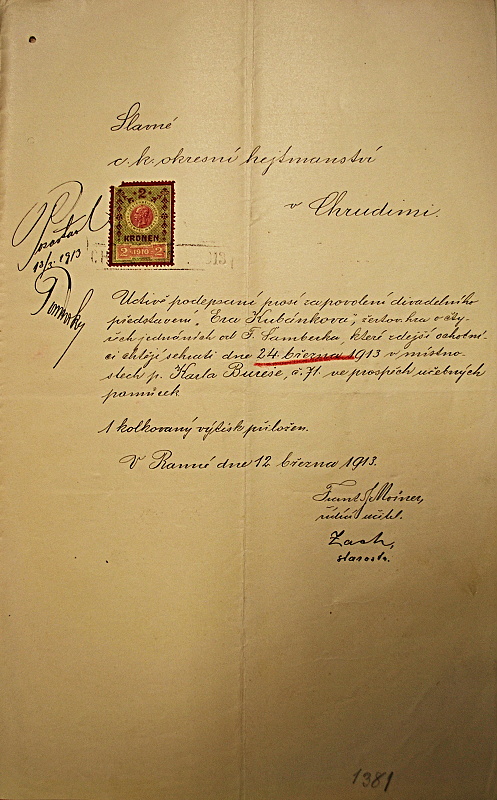 Slavné
c. k. okresní hejtmanství
v Chrudimi.
2
KRONEN
2 1910 2
13/3 1913
Uctivě podepsaní prosí za povolení divadelního
představení „Eva Kubánkova", čertov. hra o čty-
rech jednáních od F. Šamberka, které zdejší ochotní-
ci chtějí sehrati dne 24. března 1913 v místno-
stech p. Karla Bureše, č. 71. ve prospěch učebných
pomůcek.
1 kolkovaný výtisk přiložen.
V Ranné dne 12. března 1913.
řídící učitel.
Zach,
starosta.
1381